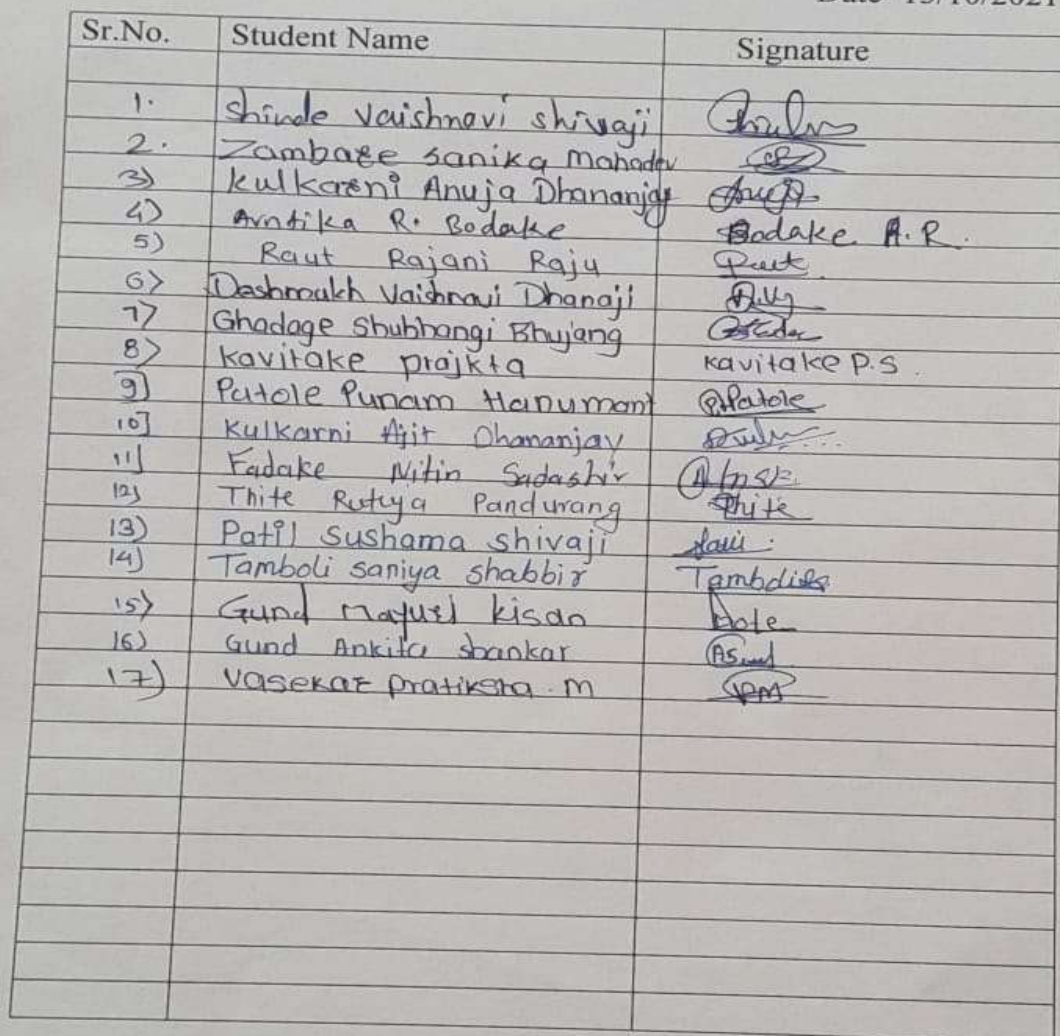 Date 13/10/2021
Sr.No. Student Name Signature
1. Shinde Vaishnavi shivaji
2. Zambare sanika Mahadev
3) Kulkarni Anuja Dhananjay
4) Avntika R. Bodake Bodake A.R.
5) Raut Rajani Raju Raut
6) Deshmukh Vaishnavi Dhanaji
7) Ghadage Shubhangi Bhujang
8) Kavitake prajkta Kavitake P.S.
9] Patole Punam Hanumant P.Patole
10] Kulkarni Ajit Dhananjay
11] Fadake Nitin Sadashiv
12) Thite Rutuja Pandurang Thite
13) Patil Sushama shivaji
14) Tamboli saniya shabbir Tamboliss
15) Gund kisan
16) Gund Ankita shankar
17) Vasekar pratiksha.M VPM